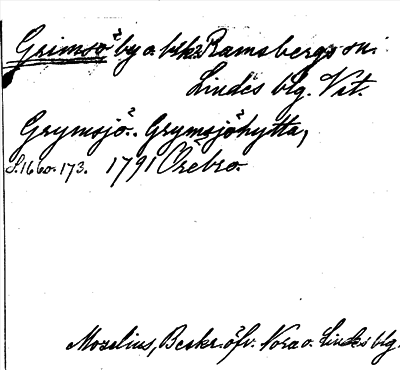 Grimsö by o. blk. Ramsbergs sn.
Lindes blg. Vst.
Grymsjö. Grymsjöhytta,
S. 1660. 173. 1791 Örebro.
Mozelius, Beskr. öfv. Nora o. Lindes blg.